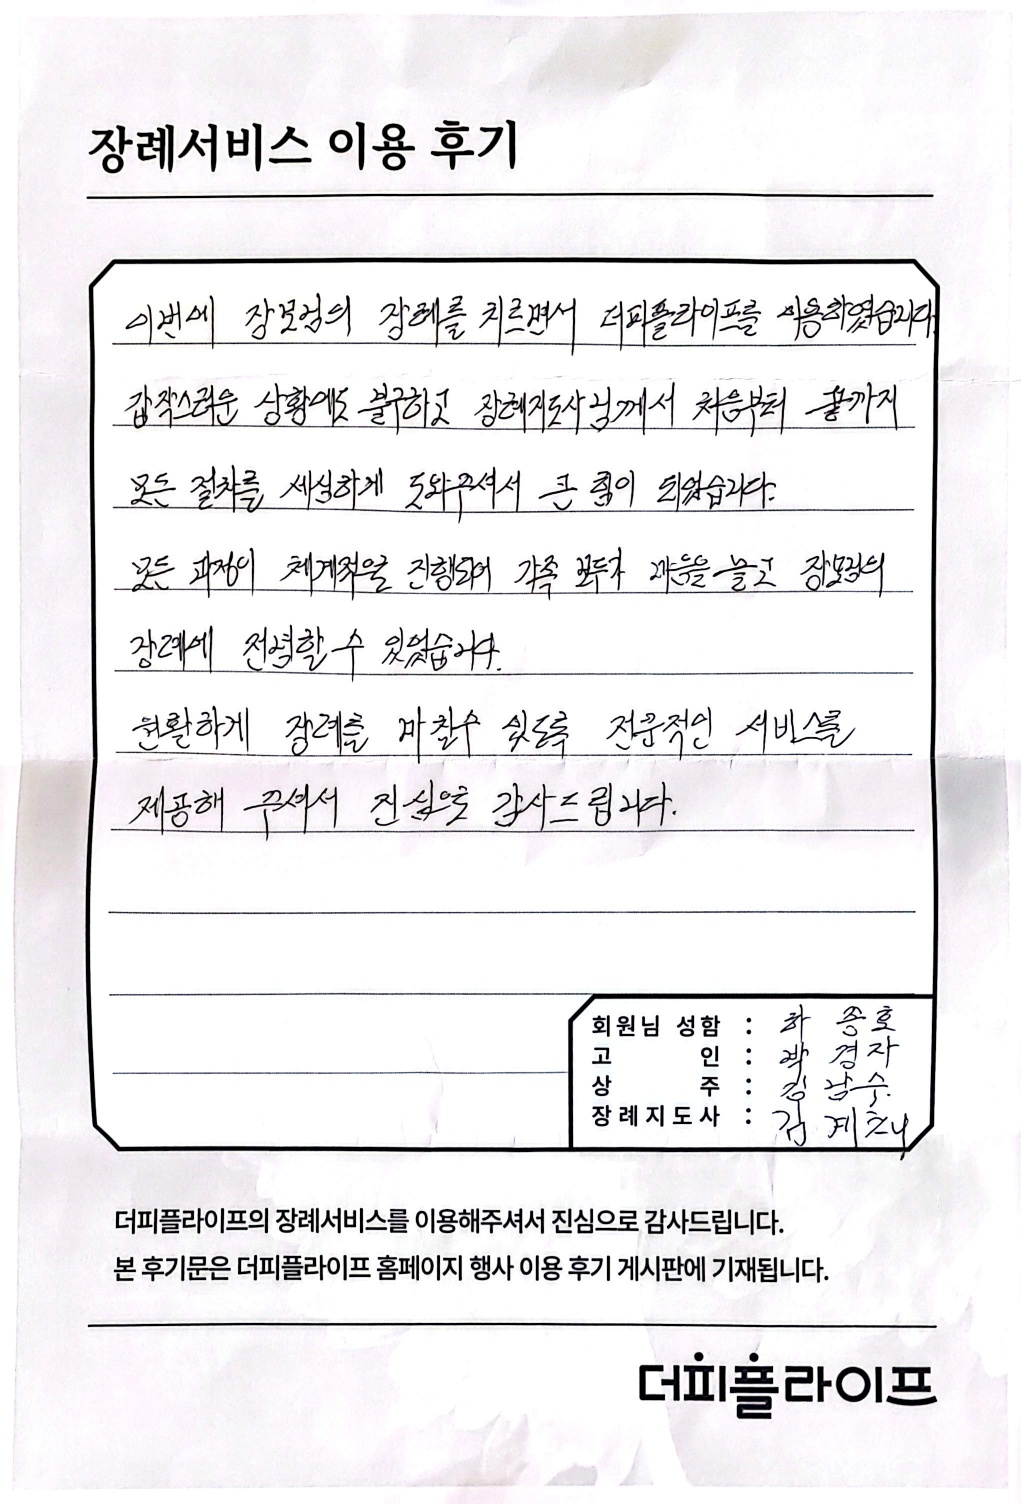 장례서비스 이용 후기
이번에 장모님의 장례를 치르면서 더피플라이프를 이용하였습니다.
갑작스러운 상황에도 불구하고 장례지도사님께서 처음부터 끝까지
모든 절차를 세심하게 도와주셔서 큰 힘이 되었습니다.
모든 과정이 체계적으로 진행되어 가족 모두가 마음을 놓고 장모님의
장례에 전념할 수 있었습니다.
원활하게 장례를 마칠수 있도록 전문적인 서비스를
제공해 주셔서 진심으로 감사드립니다.
회원님 성함 : 하종호
고 인 : 박경자
상 주 : 김남수
장례지도사 : 김계
더피플라이프의 장례서비스를 이용해주셔서 진심으로 감사드립니다.
본 후기문은 더피플라이프 홈페이지 행사 이용 후기 게시판에 기재됩니다.
더피플라이프